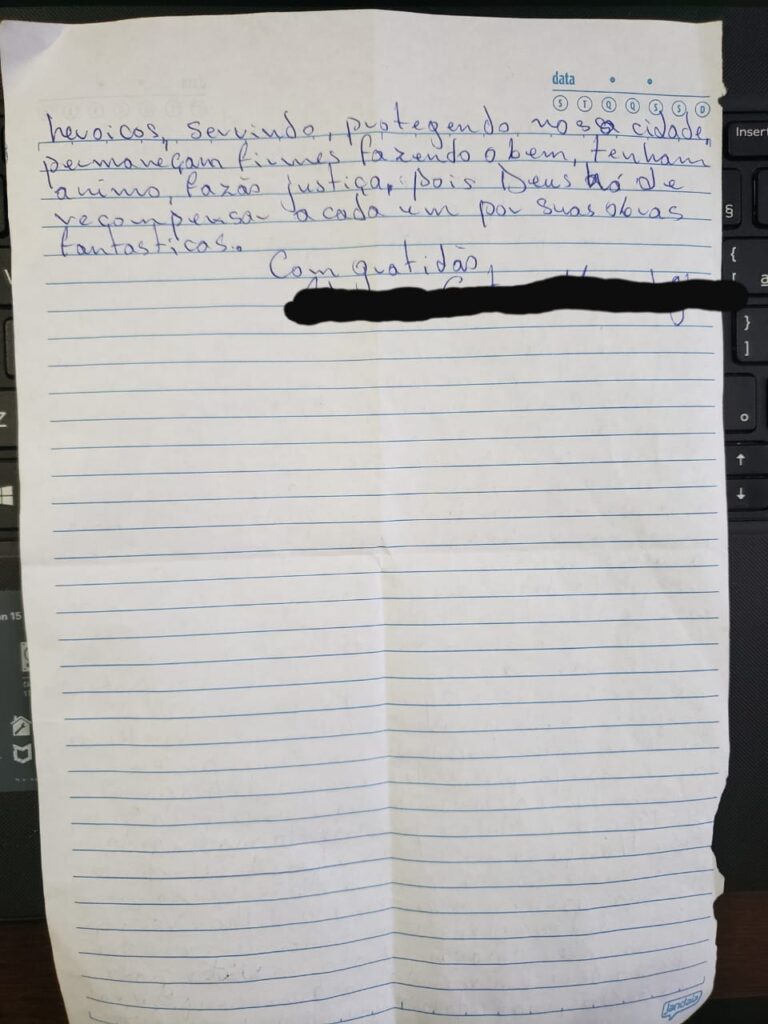 data
S T Q Q S S D
heroicos, servindo, protegendo nossa cidade,
permaneçam firmes fazendo o bem, tenham
animo, fazão justiça, pois Deus há de
recompensar a cada um por suas obras
fantasticas.
Com gratidão,
Insert
§
{
[ ª
}
]
Z
↑
↓
jandaia